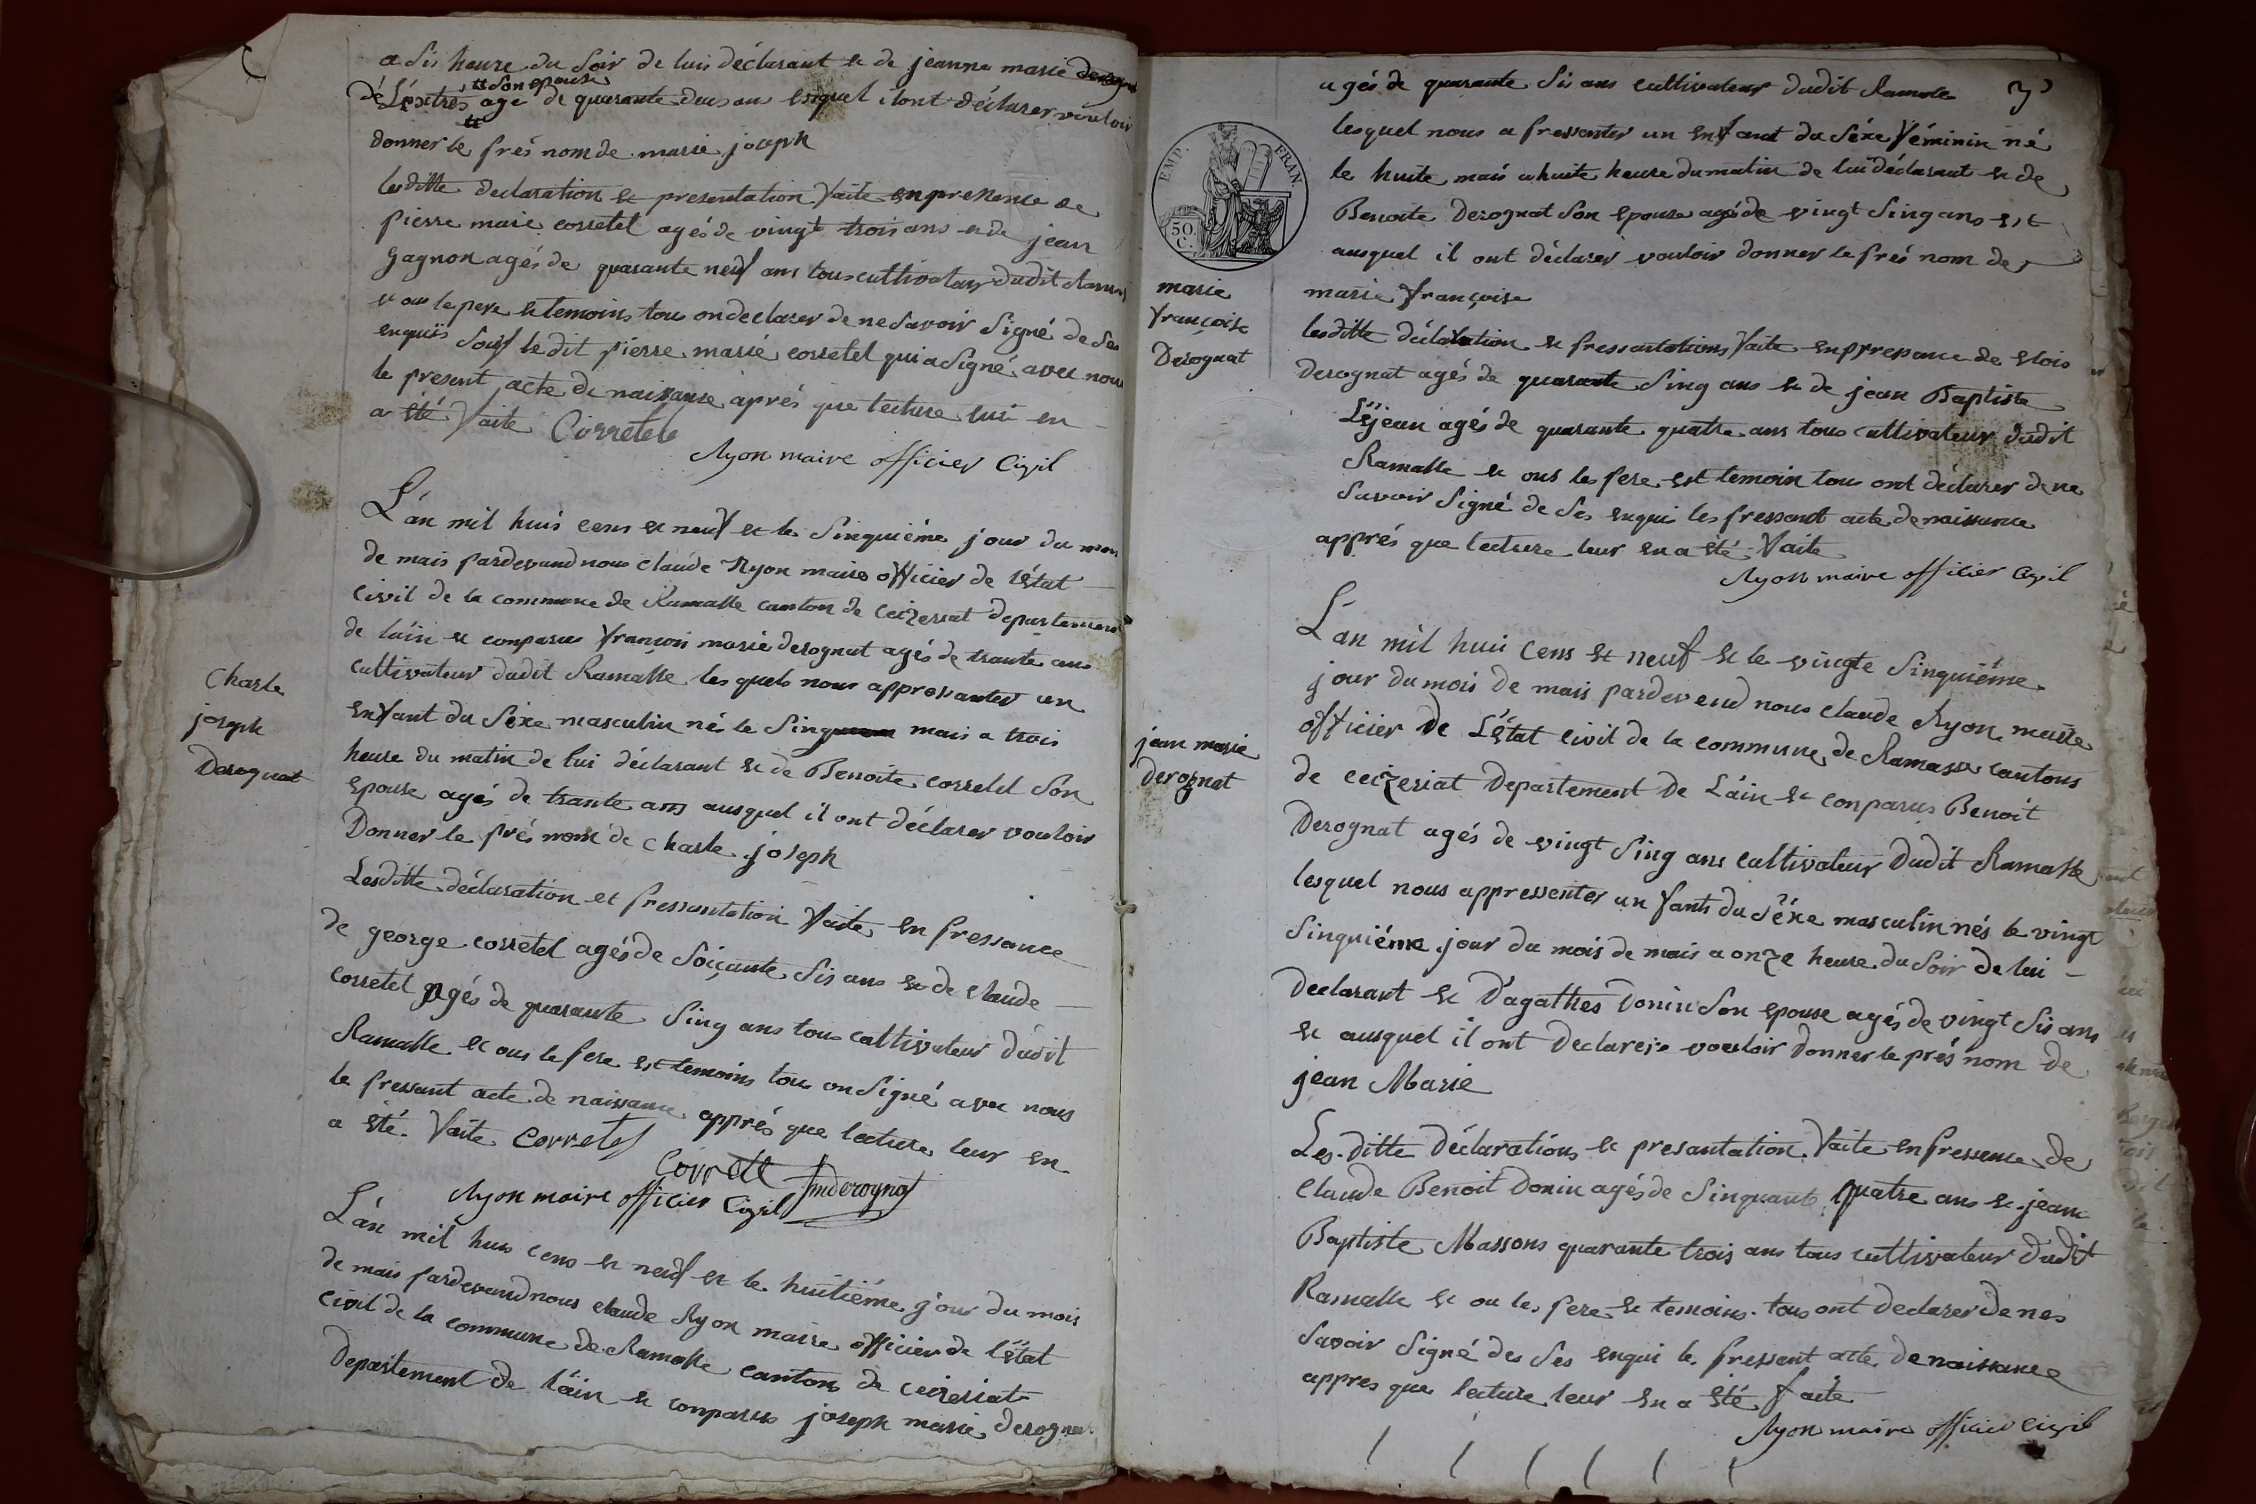 a Sis heure du Soir de lui déclarant et de jeanne marie
dé L'extres age de quarante deus ans esquel ilont déclarer vouloir
et Son epouse
donner le prés nom de marie joseph
lesditte declaration et presentation faite en presence de
pierre marie corretel agés de vingt trois ans et de jean
gagnon agés de quarante neuf ans tous cultivateur dudit Ramasse
et ous le pere et temoins tous on declarer de ne Savoir Signé de Ses
enquis Souf le dit pierre marie corretel qui a Signé avec nous
le present acte de naissance aprés que lecture lui en
a été faite Corretel
Nyon maire officier Civil
L'an mil huis cens et neuf et le Sinquiéme jour du mois
de mais pardevand nous claude Nyon maire officier de l'état
Civil de la commune de Ramasse canton de Ceizeriat departement
de l'ain et comparus françois marie derognat agés de trante ans
Cultivateur dudit Ramasse les quels nous appressanter un
enfant du Séxe masculin nés le Sing mais a trois
heure du matin de lui déclarant et de Benoite corretel Son
epouse agés de trante ans ausquel il ont déclarer vouloir
Donner le prés nom de Charle joseph
Lesditte déclaration et pressantation faite en pressance
de george corretel agés de Soiçante Sis ans et de claude
corretel agés de quarante Sing ans tous cultivateur dudit
Ramasse et ous le pere est temoins tous on Signé avec nous
le pressant acte de naissance apprés que lecture leur en
a été faite Corretel
Corretel fmderognat
Nyon maire officier Civil
L'an mil huis cens et neuf et le huitiéme jour du mois
de mais pardevand nous claude Nyon maire officier de l'état
Civil de la commune de Ramasse cantons de ceizeriat
Departement de l'ain et comparus joseph marie derognat
Charle
joseph
Derognat
agés de quarante Sis ans cultivateur dudit Ramasse
lesquel nous a pressenter un enfant du Séxe féminin né
le huite mais a huite heure du matin de lui déclarant et de
Benoite Derognat Son epouse agés de vingt Sing ans est
ausquel il ont déclarer vouloir donner le prés nom de
marie françoise
lesditte déclaration et pressantations faite en pressance de elois
Derognat agés de quarante Sing ans et de jean Baptiste
Léjean agés de quarante quatre ans tous cultivateur dudit
Ramasse et ous les pere est temoin tous ont déclarer de ne
Savoir Signé de Ses enquis les pressant acte de naissance
apprés que lecture leur en a été faite
Nyon maire officier Civil
EMP. FRAN.
50.
C.
marie
françoise
Derognat
L'an mil huis Cens et neuf et le vingte Sinquiéme
jour du mois de mais pardevend nous claude Nyon maire
officier de L'état Civil de la commune de Ramasse cantons
de ceizeriat Departement de L'ain et conparus Benoit
Derognat agés de vingt Sing ans cultivateur dudit Ramasse
lesquel nous appressenter un fants du Séxe masculin nés le vingt
Sinquiéme jour du mois de mais a onze heure du Soir de lui
Declarant et D'agathes Donin Son epouse agés de vingt Sis ans
et ausquel il ont Declarer vouloir Donner le prés nom de
jean Marie
Les ditte Déclarations et presantation faite en pressence de
Claude Benoit Donin agés de Sinquante quatre ans et jean
Baptiste Massons quarante trois ans tous cultivateur dudit
Ramasse et ou les pere et temoins tous ont Declarer De nes
Savoir Signé des Ses enqui le pressent acte de naissance
appres que lecture leur en a été faite
Nyon maire officier Civil
jean marie
Derognat